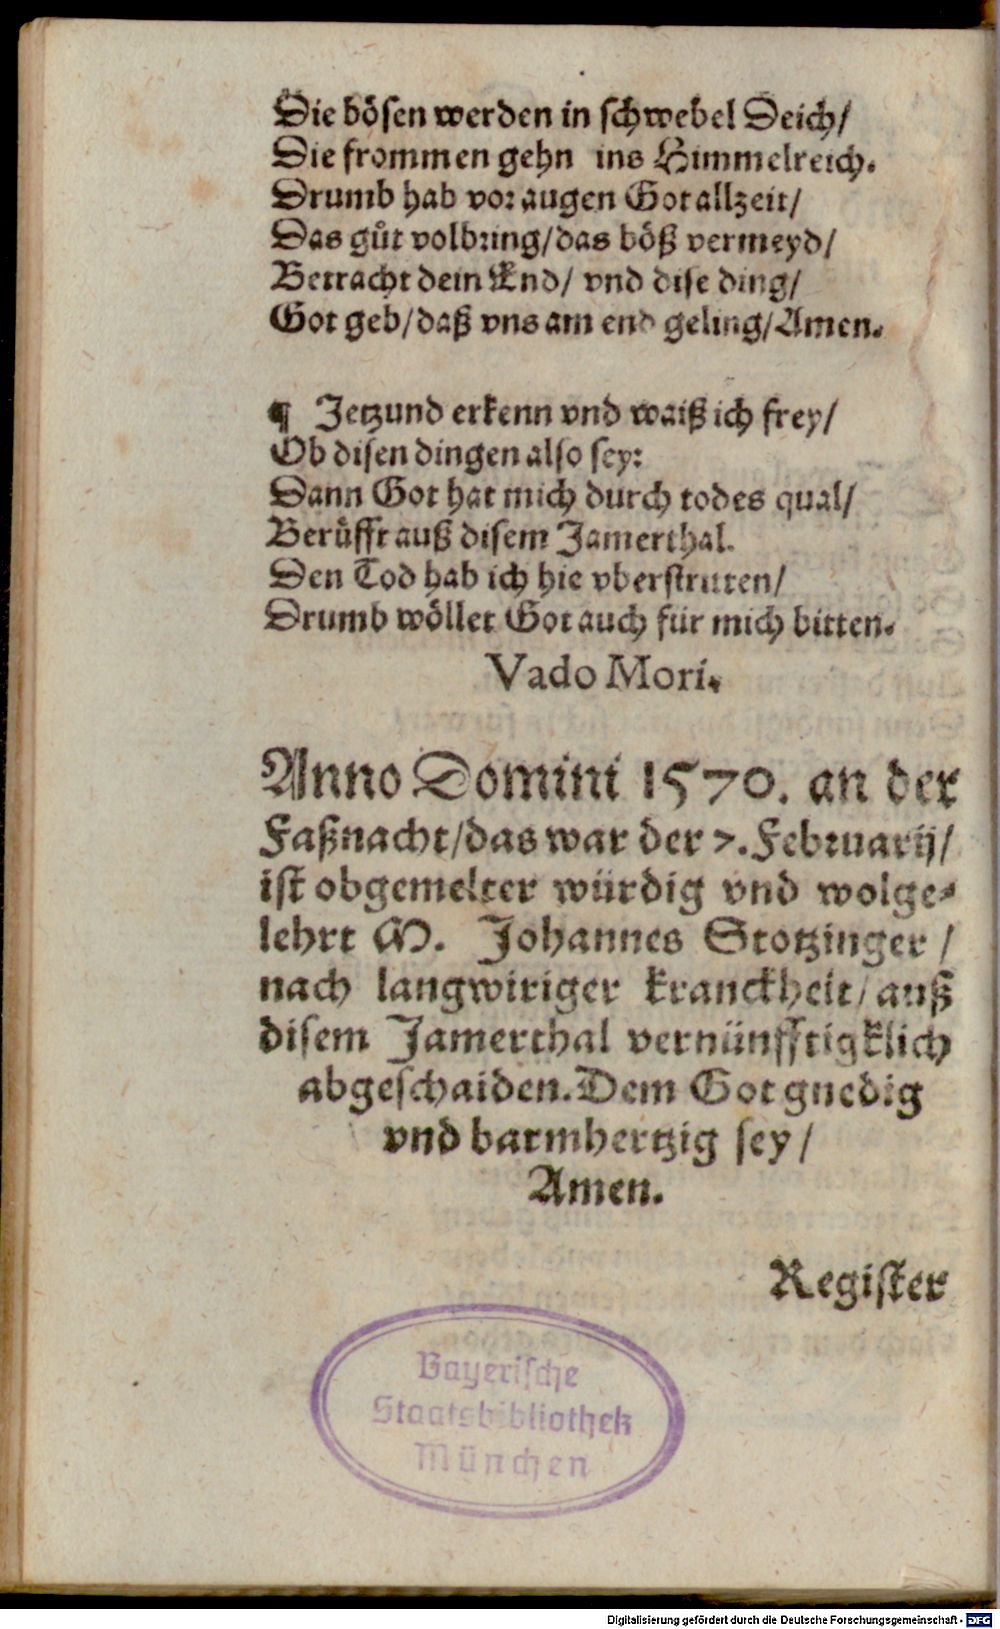 Die bösen werden in schwebel Deich/
Die frommen gehn ins Himmelreich.
Drumb hab vor augen Got allzeit/
Das gůt volbring/das böß vermeyd/
Betracht dein End/ vnd dise ding/
Got geb/daß vns am end geling/Amen.
¶ Jetzund erkenn vnd waiß ich frey/
Ob disen dingen also sey:
Dann Got hat mich durch todes qual/
Berůfft auß disem Jamerthal.
Den Tod hab ich hie vberstritten/
Drumb wöllet Got auch für mich bitten.
Vado Mori.
Anno Domini 1570. an der
Faßnacht/das war der 7. Februarij/
ist obgemelter würdig vnd wolge-
lehrt M. Johannes Stotzinger/
nach langwiriger kranckheit/auß
disem Jamerthal vernünfftigklich
abgeschaiden. Dem Got gnedig
vnd barmhertzig sey/
Amen.
Register
Bayerische
Staatsbibliothek
München
Digitalisierung gefördert durch die Deutsche Forschungsgemeinschaft - DFG